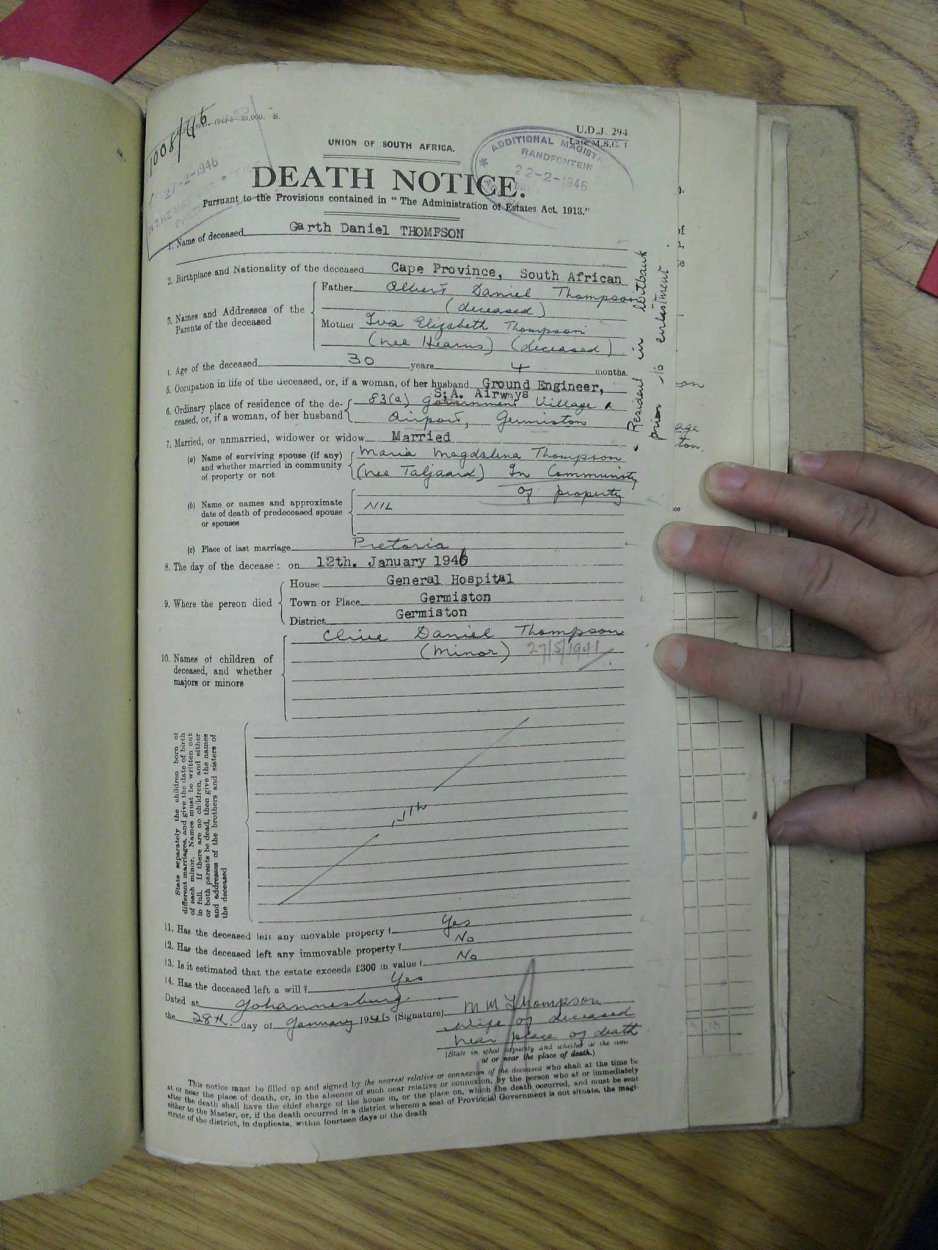 1008/46
U.D.J. 294
UNION OF SOUTH AFRICA.
ADDITIONAL
RANDFONTEIN
22-2-1946
DEATH NOTICE.
Pursuant to the Provisions contained in "The Administration of Estates Act, 1913."
1. Name of deceased Garth Daniel THOMPSON
2. Birthplace and Nationality of the deceased Cape Province, South African
3. Names and Addresses of the Parents of the deceased
Father Albert Daniel Thompson
(deceased)
Mother Iva Elizabeth Thompson
(nee Hearns) (deceased)
4. Age of the deceased 30 years 4 months.
5. Occupation in life of the deceased, or, if a woman, of her husband Ground Engineer,
S.A. Airways
6. Ordinary place of residence of the deceased, or, if a woman, of her husband
83(a) Government Village
Airport, Germiston
Resident in Witbank
prior to enlistment
7. Married, or unmarried, widower or widow Married
(a) Name of surviving spouse (if any) and whether married in community of property or not
Maria Magdalena Thompson
(nee Taljaard) In Community
of property
(b) Name or names and approximate date of death of predeceased spouse or spouses
NIL
(c) Place of last marriage Pretoria
8. The day of the decease: on 12th. January 1946
9. Where the person died
House General Hospital
Town or Place Germiston
District Germiston
10. Names of children of deceased, and whether majors or minors
Clive Daniel Thompson
(Minor) 27/5/1941
State separately the children born of
different marriages, and give the date of birth
of each minor. Names must be written out
in full. If there are no children, and either
or both parents be dead, then give the names
and addresses of the brothers and sisters of
the deceased
Nil
11. Has the deceased left any movable property? Yes
12. Has the deceased left any immovable property? No
13. Is it estimated that the estate exceeds £300 in value? No
14. Has the deceased left a will? Yes
Dated at Johannesburg
the 28th. day of January 1946 (Signature) M M Thompson
Wife of deceased
near place of death
(State in what capacity and whether at the time
at or near the place of death.)
This notice must be filled up and signed by the nearest relative or connexion of the deceased who shall at the time be
at or near the place of death, or, in the absence of such near relative or connexion, by the person who at or immediately
after the death shall have the chief charge of the house in, or the place on, which the death occurred, and must be sent
either to the Master, or, if the death occurred in a district wherein a seat of Provincial Government is not situate, the magi-
strate of the district, in duplicate, within fourteen days of the death